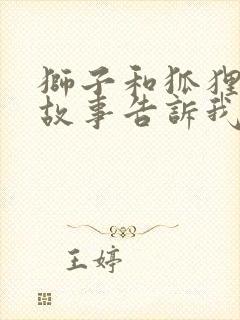 獅子和狐狸
故事告訴我
王婷